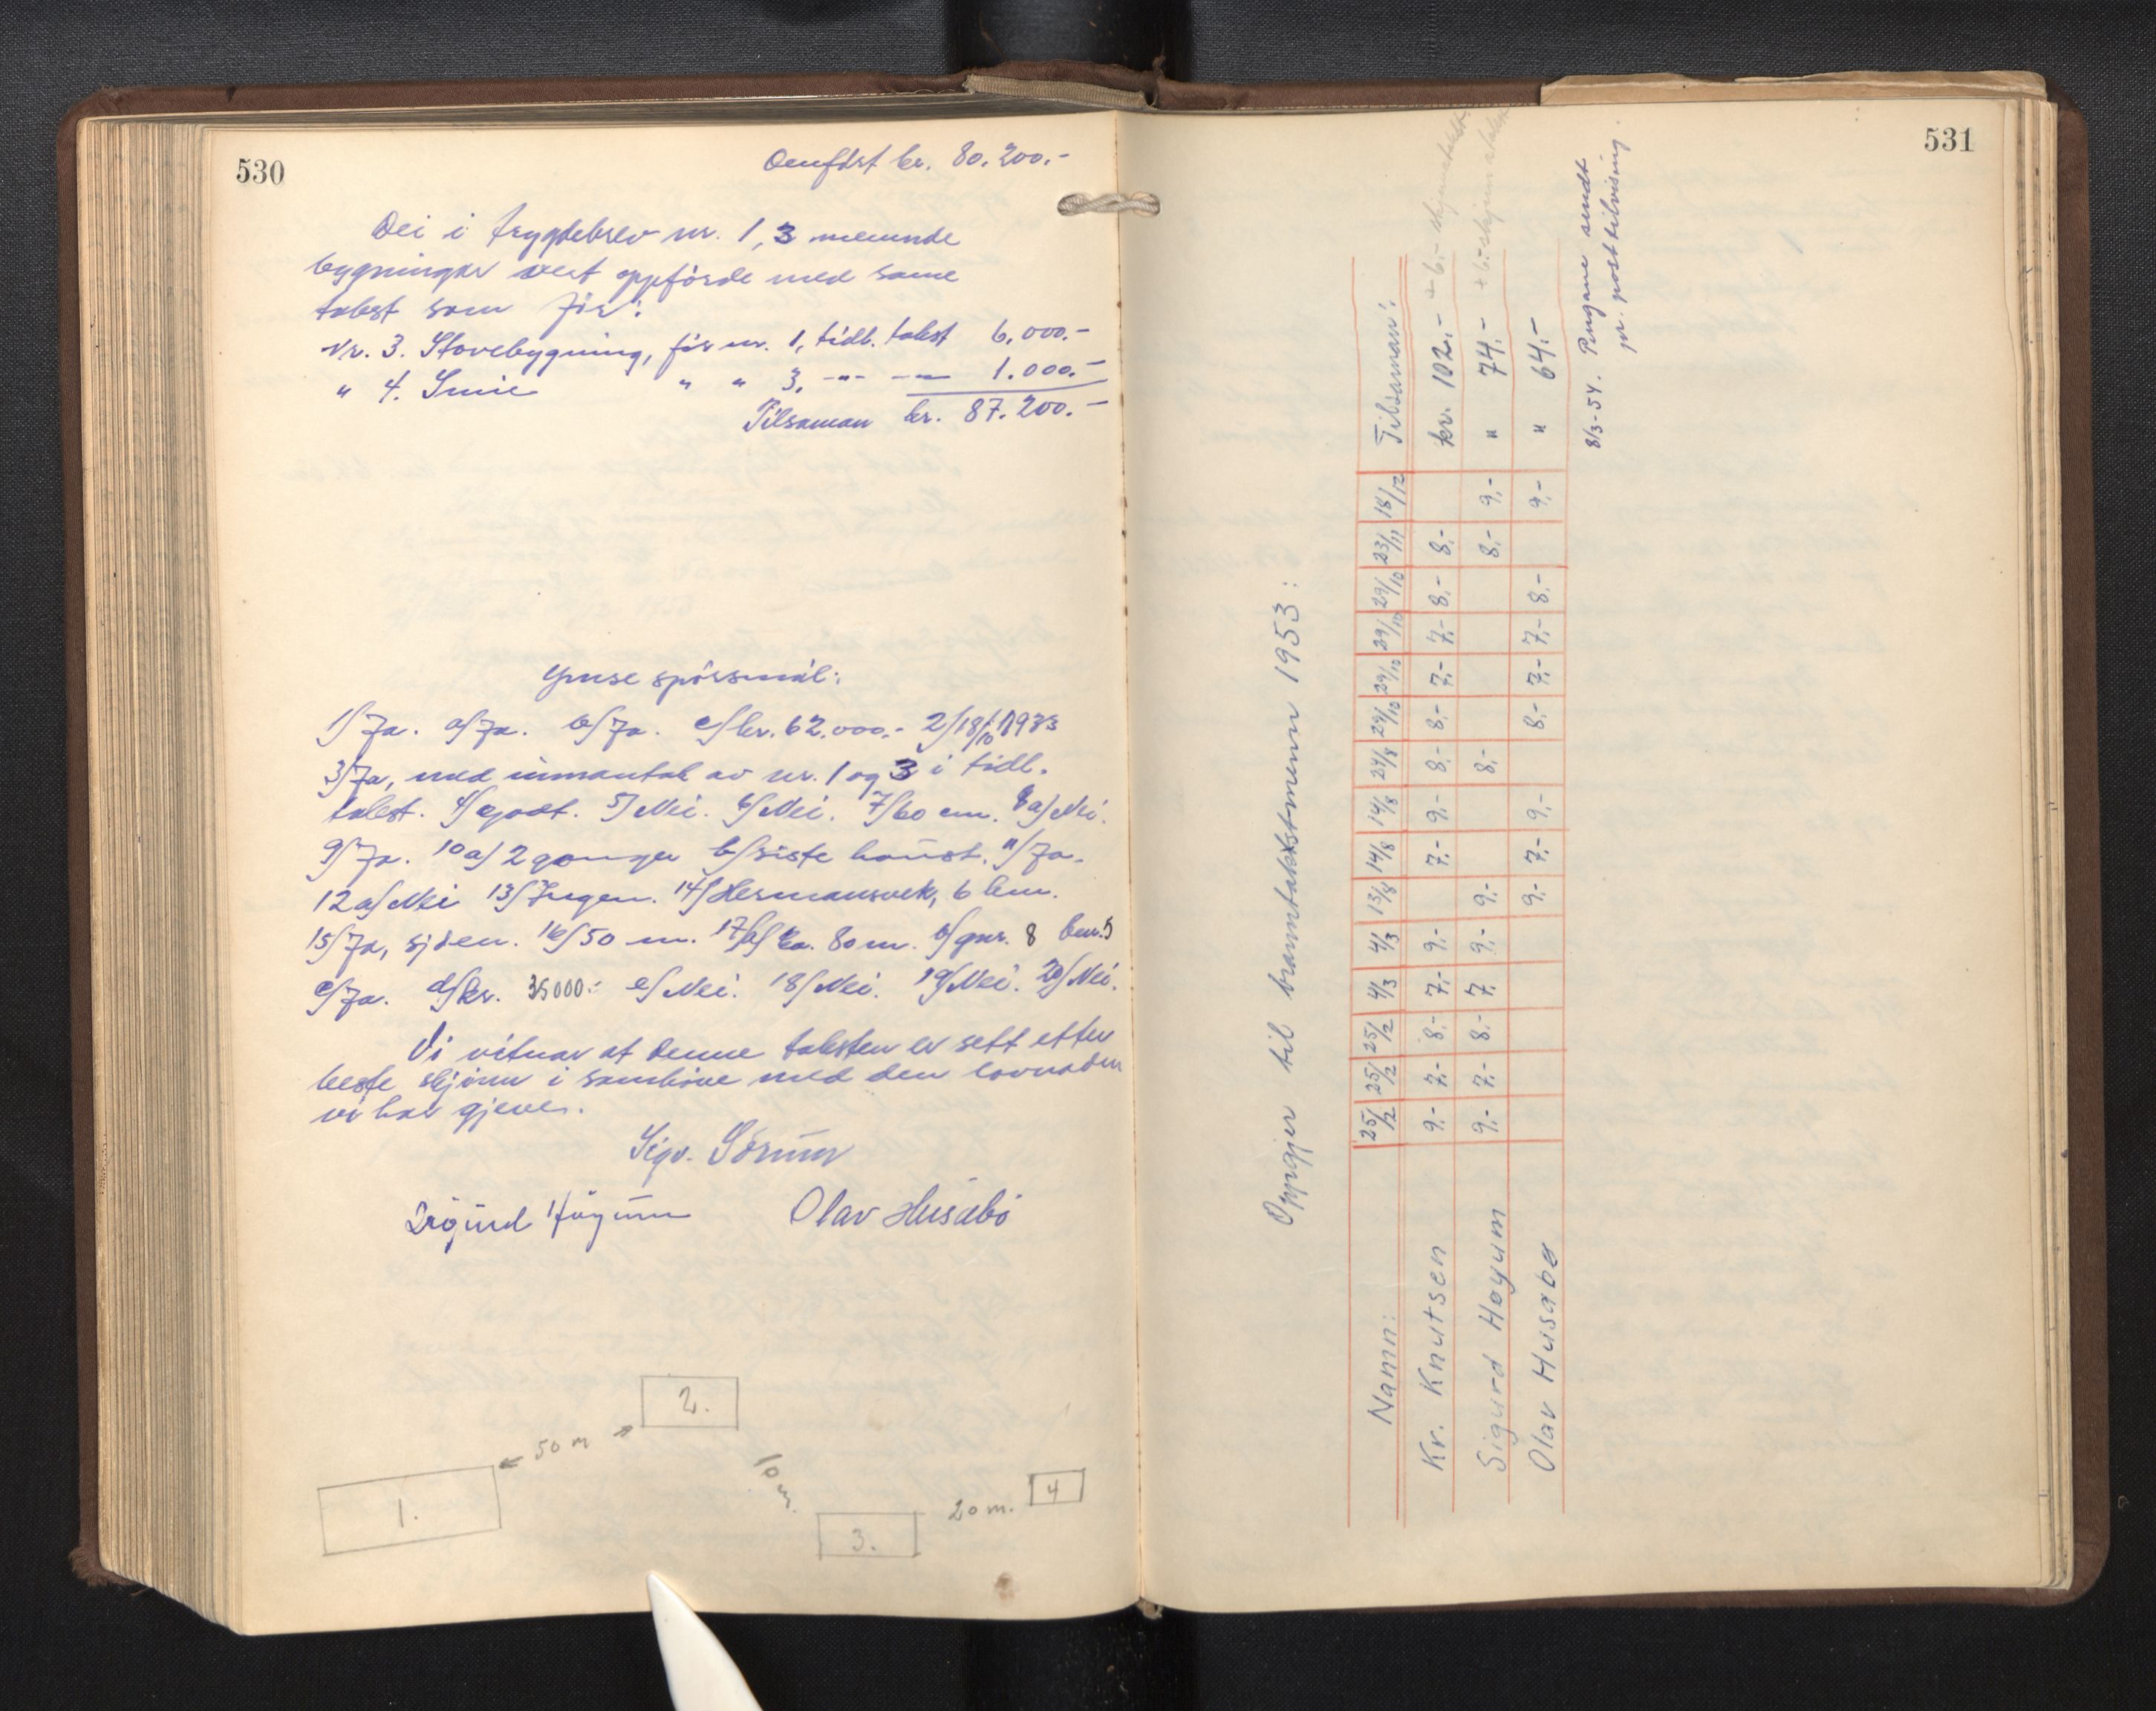 530
Omfört kr. 80.200.-
Dei i trygdebrev nr. 1, 3 nemnde
bygningar vert oppförde med same
takst som för:
Nr. 3. Stovebygning, för nr. 1, tidl. takst 6.000.-
" 4. Smie " " 3. -"- -"- 1.000.-
Tilsaman kr. 87.200.-
Ymse spörsmål:
1/ Ja. a/ Ja. b/ Ja. c/ kr. 62.000.- 2/ 18/10 1933
3/ Ja, med unnantak av nr. 1 og 3 i tidl.
takst. 4/ godt. 5/ Nei. 6/ Nei. 7/ 60 cm. 8a/ Nei.
9/ Ja. 10a/ 2 gonger b/ siste haust. 11/ Ja.
12a/ Nei 13/ Ingen. 14/ Hermansverk, 6 km.
15/ Ja, sjöen. 16/ 50 m. 17/a/ ca. 80 m. b/ gnr. 8 bnr. 5
c/ Ja. d/ kr. 35000.- e/ Nei. 18/ Nei. 19/ Nei. 20/ Nei.
Vi vitnar at denne taksten er sett etter
beste skjönn i samhöve med den lovnaden
vi har gjeve.
Sigv. Sörum
Sigurd Höyum Olav Husabö
2.
← 50 m →
1.
10 m.
3.
20 m.
4
531
Oppgjer til branntakstmenn 1953:
Namn: 25/2 25/2 25/2 4/3 4/3 13/8 14/8 14/8 24/8 29/10 29/10 29/10 29/10 23/11 18/12 Tilsaman:
Kr. Knutsen 9.- 7.- 8.- 7.- 9.- 7.- 9.- 8.- 8.- 7.- 7.- 8.- 8.- kr. 102.- + 6.-
Sigurd Høyum 9.- 7.- 8.- 7. 9.- 9.- 8.- 8.- 9.- " 74.- + 6.-
Olav Husabø 9.- 7.- 9.- 8.- 7.- 7.- 8.- 9.- " 64.-
8/3-54. Pengane sendt
pr. posttilvising.